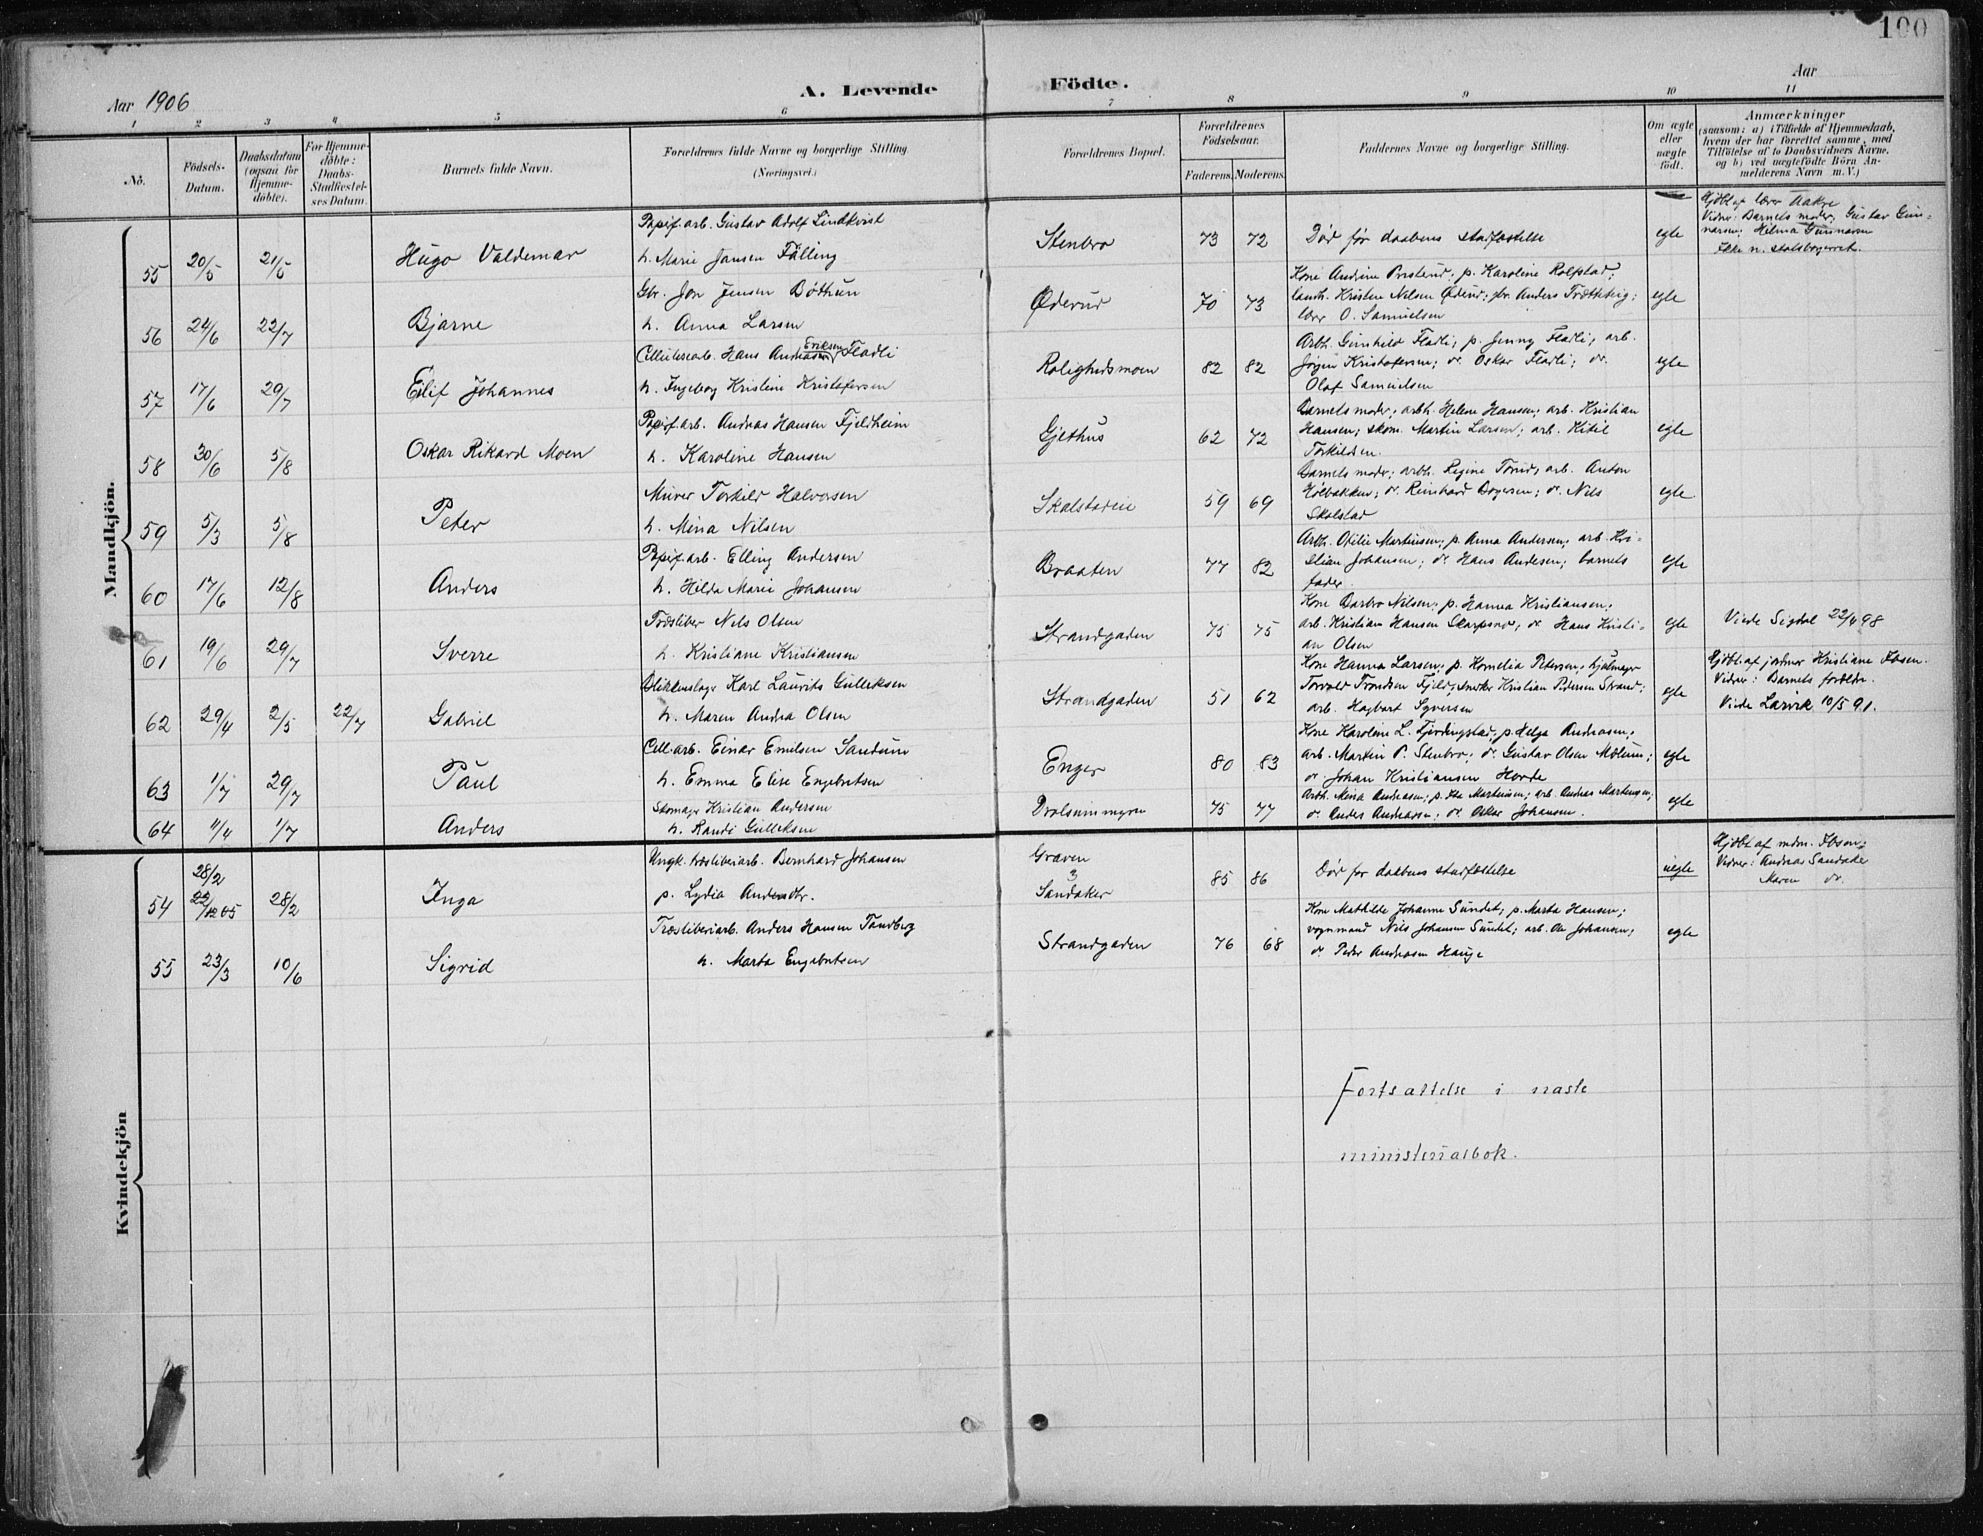 100
Aar 1906
A. Levende Födte.
Aar
1 2 3 4 5 6 7 8 9 10 11
No.
Födsels-Datum.
Daabsdatum (ogsaa for Hjemme-døbte).
For Hjemme-døbte: Daabs-Stadfæstel-ses Datum.
Barnets fulde Navn.
Forældrenes fulde Navne og borgerlige Stilling (Næringsvei.)
Forældrenes Bopæl.
Forældrenes Födselsaar.
Faderens. Moderens.
Faddernes Navne og borgerlige Stilling.
Om ægte eller uægte født.
Anmærkninger
(saasom: a) i Tilfælde af Hjemmedaab,
hvem der har forrettet samme, med
Tilföielse af to Daabsvidners Navne,
og b) ved uægtefödte Börn An-
melderens Navn m. V.)
Mandkjön.
55 20/5 21/5 Hugo Valdemar
Papirf.arb. Gustav Adolf Lindkvist
h. Marie Jansen Fälling
Stenbro 73 72 Død før daabens stadfæstelse egte
Hjdbt af lærer Aakre
Vidner: Barnets moder, Gustav Gun-
narsen; Helma Gunnarsen
Ikke n. statsborgerret.
56 24/6 22/7 Bjarne
Gbr. Jon Jensen Böttun
h. Anna Larsen
Øderud 70 73
Kone Andrine Prestrud; p. Karoline Rolfstad;
landh. Kristen Nilsen Øderud; gbr. Anders Trætteteig;
lærer O. Samuelsen
egte
57 17/6 29/7 Eilif Johannes
Cellulosearb. Hans Andreas Eriksen Fladli
h. Ingeborg Kristine Kristofersen
Rolighedsmoen 82 82
Arbh. Gunhild Fladli; p. Jenny Fladli; arb.
Jörgen Kristofersen; do. Oskar Fladli; do.
Olaf Samuelsen
egte
58 30/6 5/8 Oskar Rikard Moen
Papirf.arb. Andreas Hansen Fjeldheim
h. Karoline Hansen
Gjethus 62 72
Barnets moder; arbh. Helene Hansen; arb. Kristian
Hansen; skom. Martin Larsen; arb. Kitil
Torkildsen.
egte
59 5/3 5/8 Peter
Murer Torkild Halvorsen
h. Mina Nilsen
Skalstadeie 59 69
Barnets moder; arbh. Regine Torud; arb. Anton
Hölbakken; do. Reinhard Borgersen; do. Nils
Skalstad
egte
60 17/6 12/8 Anders
Papirf.arb. Elling Andersen
h. Hilda Marie Johansen
Braaten 77 82
Arbh. Otilie Martinsen; p. Anna Andersen; arb. Kri-
stian Johansen; do. Hans Andersen; barnets
fader.
egte
61 19/6 29/7 Sverre
Træsliber Nils Olsen
h. Kristiane Kristiansen
Strandgaden 75 75
Kone Barbro Nilsen; p. Hanna Kristiansen;
arb. Kristian Hansen Skarpsno; do. Hans Kristi-
an Olsen
egte
Viede Sigdal 22/4 98
62 29/4 2/5 22/7 Gabriel
Blikkenslager Karl Laurits Gulliksen
h. Maren Andrea Olsen
Strandgaden 51 62
Kone Hanna Larsen; p. Kornelia Petersen; hjulmager
Torvald Trondsen Fjeld; snekker Kristian Pedersen Strand;
arb. Hagbart Syversen
egte
Hjdbt. af jordmor Kristiane Ibsen.
Vidner: Barnets forældre.
Viede Larvik 10/5 91.
63 1/7 29/7 Paul
Cell.arb. Einar Emilsen Sandum
h. Emma Elise Engebretsen
Enger 80 83
Kone Karoline L. Fjerdingstad; p. Helga Andreasen;
arb. Martin P. Stenbro; do. Gustav Olsen Mælum;
do Johan Kristiansen Horde
egte
64 11/4 1/7 Anders
Skomager Kristian Andersen
h. Randi Gulliksen
Drolsummyren 75 77
Arbh. Mina Andreasen; p. Ida Martinsen; arb. Andreas Martinsen;
do Anders Andreasen; do. Oskar Johansen.
egte
Kvindekjön
54 28/2 22/12 05 28/2 Inga
Ungk. træsliberiarb. Bernhard Johansen
p. Lydia Andersdtr.
Graven
3
Sandaker 85 86 Død før daabens stadfæstelse uegte
Hjdbt af mdm. Ibsen;
Vidner: Andreas Sandaker
Maren do.
55 23/3 10/6 Sigrid
Træsliberiarb. Anders Hansen Tandberg
h. Marta Engebretsen
Strandgaden 76 68
Kone Mathilde Johanne Sundet; p. Marta Hansen;
vognmand Nils Johansen Sundet; arb. Ole Johansen;
do Peder Andreasen Hauge
egte
Fortsattelse i naste
ministerialbok.